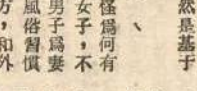 然是基于
、
怪爲何有
女子，不
男子爲妻
風俗習慣
方，和外